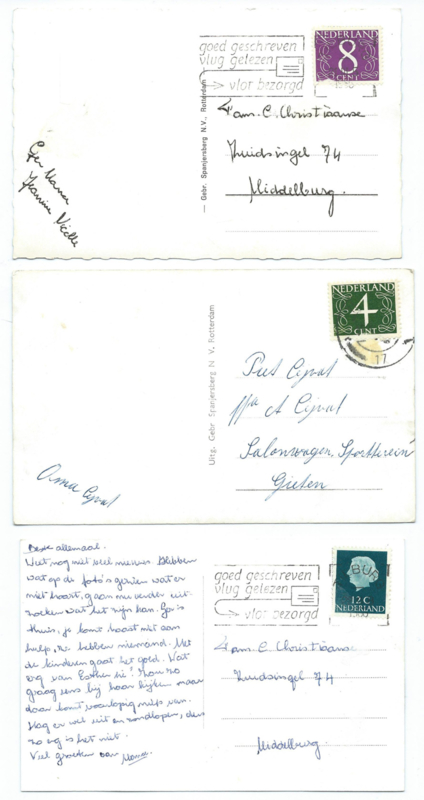 goed geschreven
vlug gelezen
vlot bezorgd
NEDERLAND
8
CENT
Fam. C. Christiaanse
Zuidsingel 74
Middelburg.
Gebr. Spanjersberg N.V., Rotterdam
NEDERLAND
4
CENT
17
Piet
Salonwagen
Gieten
Uitg. Gebr Spanjersberg N V, Rotterdam
Beste allemaal.
Veel nog niet veel nieuws. Hebben
wat op de foto's gezien wat er
niet hoort, gaan nu verder uit-
zoeken wat het zijn kan. Ga is
thuis, je komt haast niet aan
hulp, ze hebben niemand. Met
de kinderen gaat het goed. Wat
erg van Esther hè! Zou zo
graag eens bij haar kijken maar
daar komt voorlopig niets van.
Mag er wel uit en rondlopen, dus
zo erg is het niet.
Veel groeten van
goed geschreven
vlug gelezen
vlot bezorgd
12 C
NEDERLAND
Fam. C. Christiaanse
Zuidsingel 74
Middelburg.